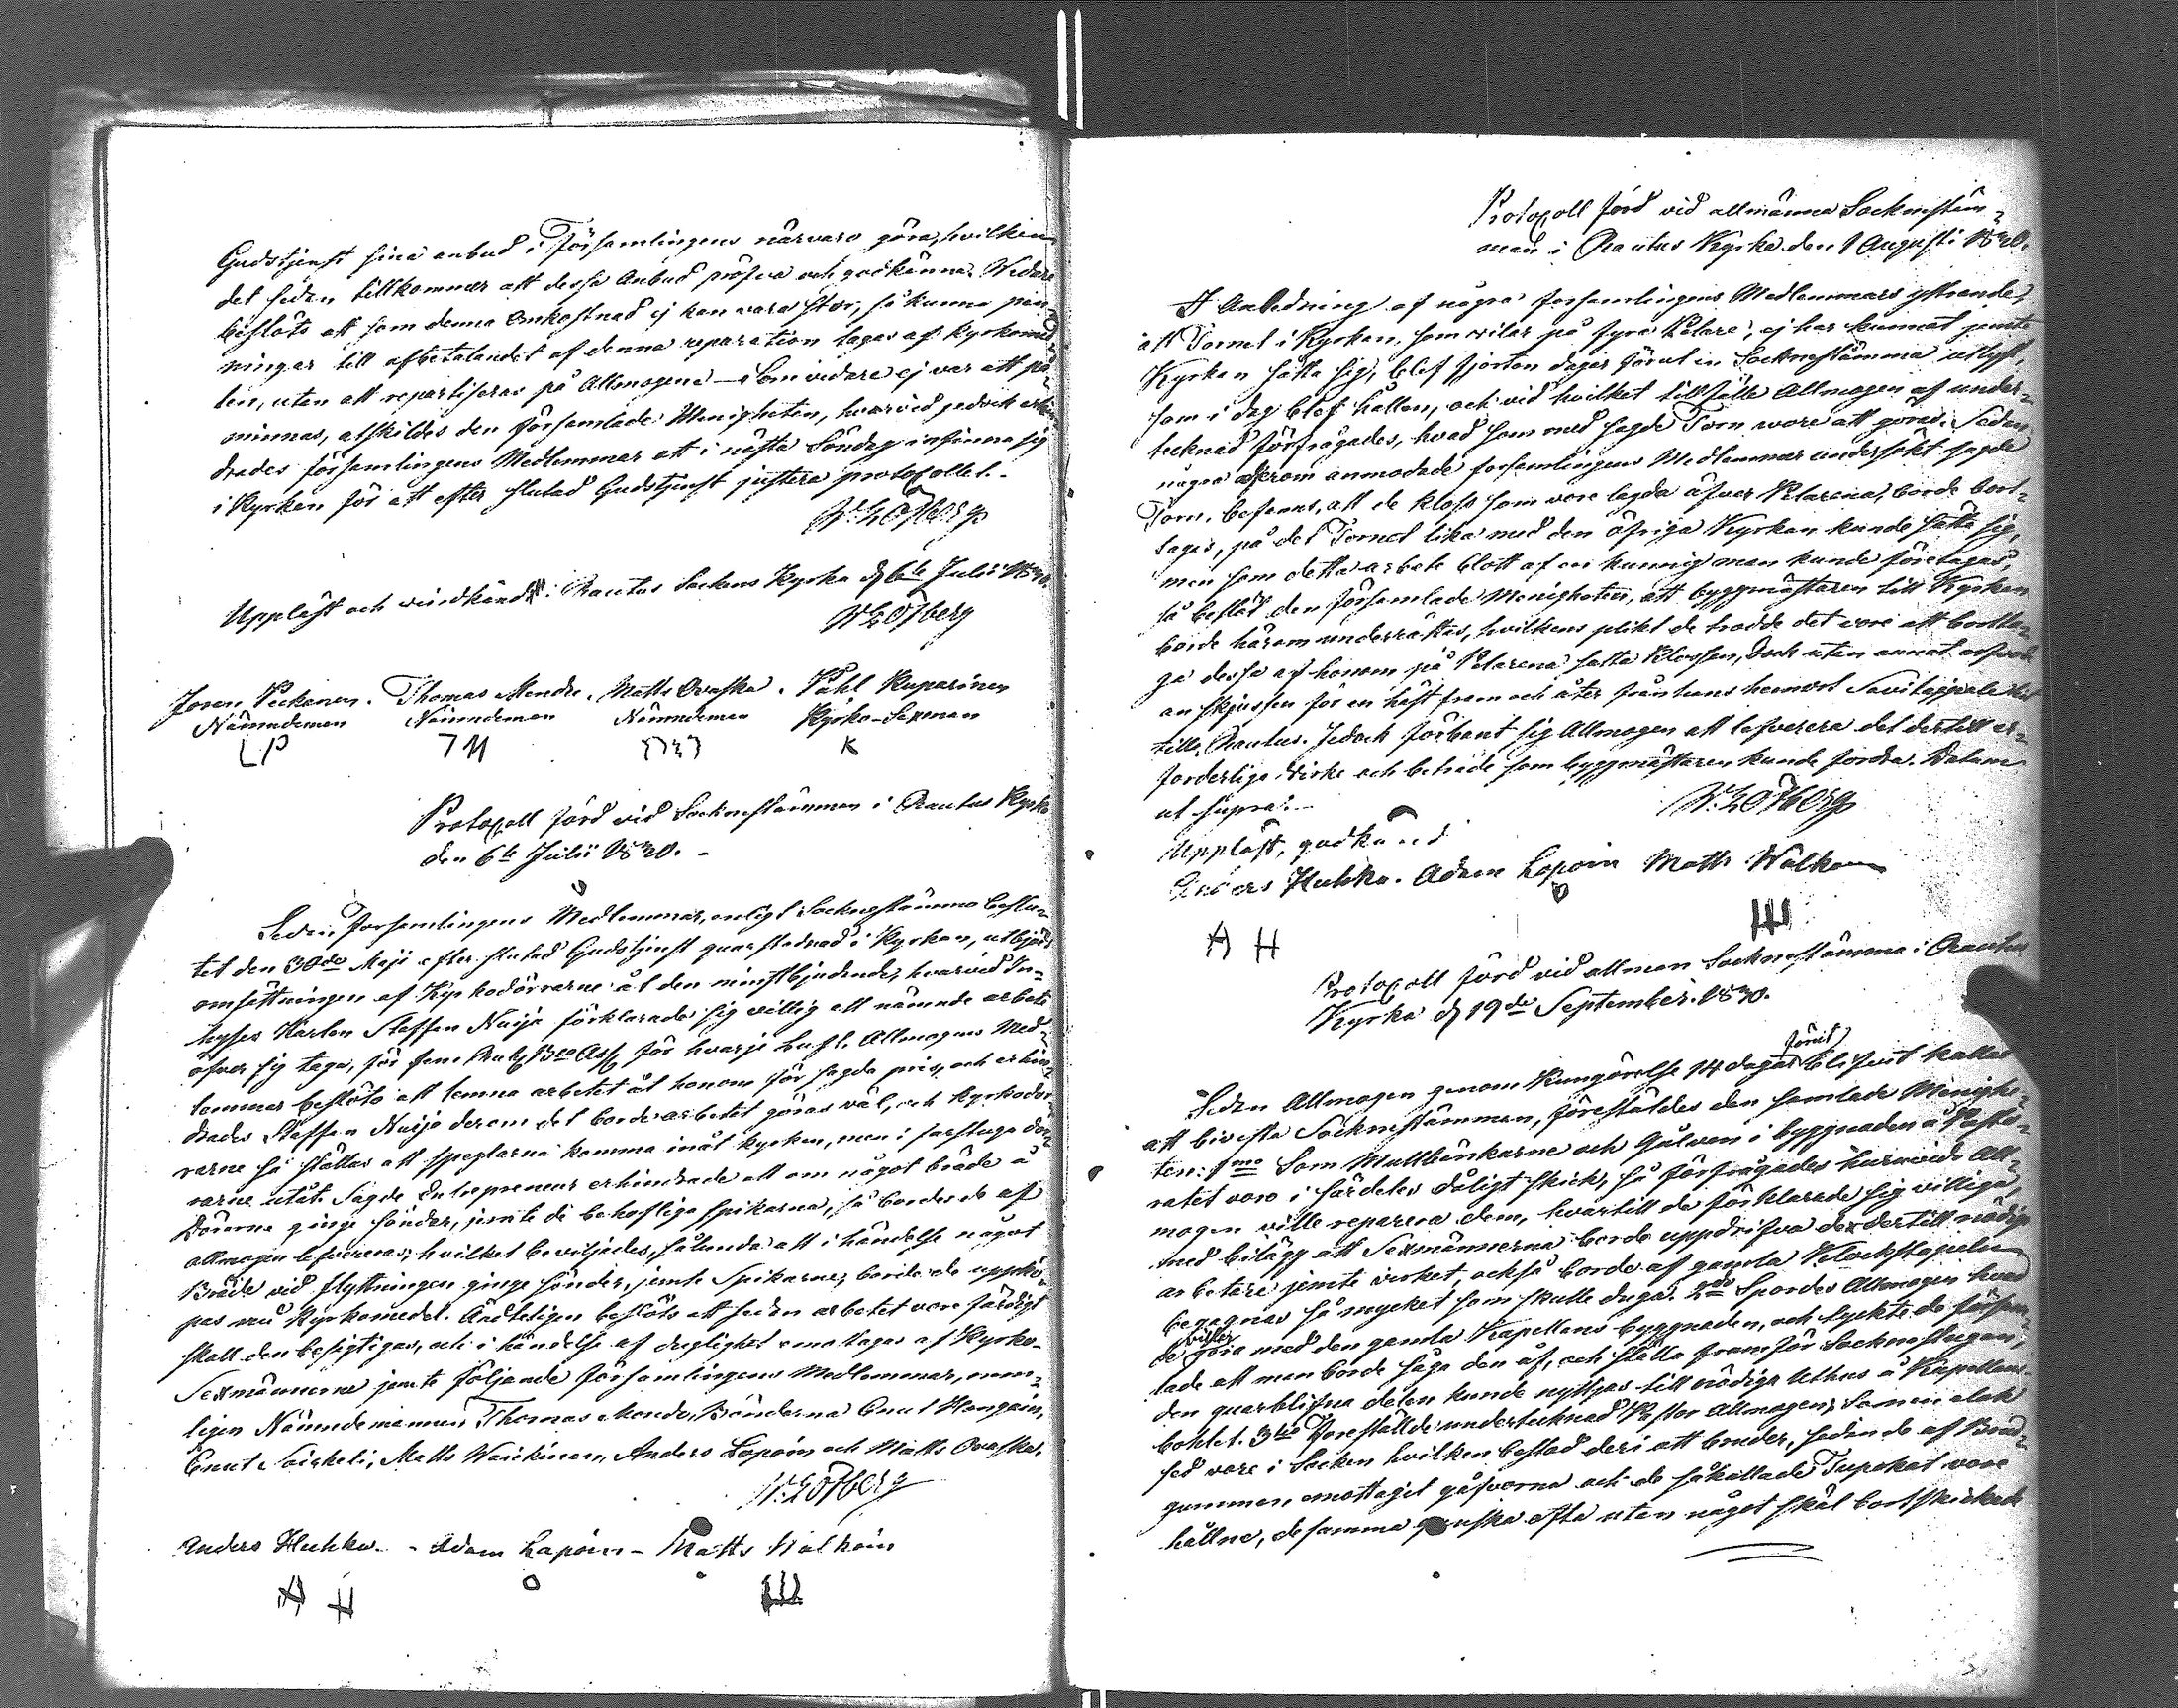 Gudstjenst sina anbud i Församlingens närvaro göra, hvilken
det sedan tillkommer att dessa Anbud pröfva och godkänna. Widare
beslöts att som denna Omkostnad ej kan vara stor, så kunna pen-
ningar till afbetalandet af denna reparation tagas af Kyrkomed-
len, utan att repartiseras på Allmogene — Som vidare ej var att på-
minnas, afskildes den församlade Menigheten, hvarvid jedoch erhin-
drades församlingens Medlemmar att i nästa Söndag infinna sig
i Kyrkan för att efter slutad Gudstjenst justera protocollet.-
Uppläst och vidkändt i Rautus Sockens Kyrka d 6te Julii 1830.
Joren Peckanen. Thomas Mendo. Matts Ovaska. Påhl Kuparinen
Nämndeman Nämndeman Nämndeman Kyrko-Sexman
LP TM K
Protocoll förd vid Socknestämman i Rautus Kyrka
den 6te Julii 1830. -
Sedan Församlingens Medlemmar, enligt Socknestämmo beslu-
tet den 30de Maji efter slutad Gudstjenst quarstadnad i Kyrkan, utbjöds
omsättningen af Kyrkodörrarne åt den minstbjudande, hvarvid In-
hyses Karlen Staffan Naija förklarade sig villig att nämnde arbete
öfver sig taga, för fem Rub för hvarje Allmogens Med-
lemmar beslöto att lemna arbetet åt honom för sagde pris, och erhin-
drades Staffan Naija derom det borde arbetet göras väl, och Kyrkodör-
rarne så ställas att speglarna komma inåt kyrkan, men i farstuga dör-
rarne utåt. Sagde Entrepreneur erhindrade att om något bräde å
Dörrarne ginge sönder, jemte de behöflige spikarna, så borde de af
allmogen lefvereras; hvilket beviljades, sålunda att i händelse något
Bräde vid flyttningen ginge sönder, jemte Spikarne, borde de uppkö-
pas med Kyrkomedel. Ändteligen beslöts att sedan arbetet vore färdigt
skall den besigtigas, och i händelse af duglighet emottagas af Kyrko-
Sexmännerne jemte följande församlingens Medlemmar, nem-
ligen Nämndemannen Thomas Mendo, Bönderna Enut Hangain,
Enut Soickeli, Matts Waickinen, Anders Lapoin och Matts Ovaska.
Anders Huhka. - Adam Lapoin - Matts Walkoin
A H
Protocoll förd vid allmänna Socknestäm-
man i Rautus Kyrka den 1 Augusti 1830.
I Anledning af några församlingens Medlemmars yttrande,
att Tornet i Kyrkan, som vilar på fyra Pelare, ej har kunnat jemte
Kyrkan sätta sig, blef fjorton dagar förut en Socknestämma utlyst,
som i dag blef hållen, och vid hvilket tillfälle Allmogen af under-
tecknad förfrågades, hvad som med sagde Torn wore att göra. Sedan
några derom anmodade församlingens Medlemmar undersökt sagde
Torn, befanns, att de kloss som vore lagda öfver Pelarena, borde bort-
tagas, på det Tornet lika med den öfriga Kyrkan kunde sätta sig,
men som detta arbete blott af en kunnig man kunde företagas,
så beslöt den församlade Menigheten, att byggmästaren till Kyrkan
borde härom underrättas, hvilkens plikt de trodde det vore att bortta-
ga dessa af honom på Pelarena satta klossen, doch utan annat
än skjussen för en häst fram och åter från hans hemort Savitaipale
till Rautus. Jedock förbant sig Allmogen att lefverera det dertill er-
forderliga virke och biträde som byggmästaren kunde fordra. Datum
ut supra. -
Uppläst, godkänd
Anders Huhka. Adam Lapoin Matts Walkoin
A H
Protocoll förd vid allman Socknestämma i Rautus
Kyrka d 19de September 1830.
Sedan Allmogen genom Kungörelse 14 dagar förut blifvit kallad
att bivista Socknestämman, förestäldes den samlade Menighe-
ten: 1mo Som Mullbänkarne och Gålven i byggnaden å Pasto-
ratet voro i särdeles dåligt skick, så förfrågades huruvida All-
mogen ville reparera dem, hvartill de förklarade sig villiga,
med bilägg att Sexmännerna borde uppdrifva de dertill nödige
arbetare jemte virket, också borde af gamla Klockstapeln
begagnas så mycket som skulle duga. 2do Spordes Allmogen hvad
de ville göra med den gamla Kapellans byggnaden, och tyckte de försam-
lade att man borde såga den af, och ställa framför Socknestugan,
den quarblifna delen kunde nyttjas till nödiga Uthus å Kapellans-
bohlet. 3tio Förestälde undertecknad Pastor Allmogen, Som en elak
sed vore i Socken hvilken bestod deri att bruder, sedan de af Brud-
gummen emottagit gåfvorna och de såkallade Tupakat vore
hållne, desamma ganska ofta utan något skäl bortskickade